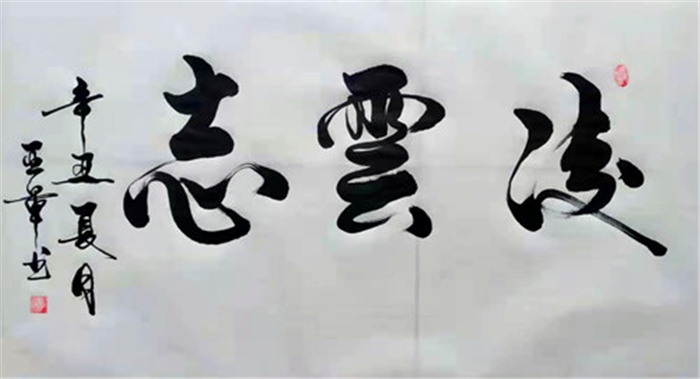 凌雲志
辛丑夏月
亚军书